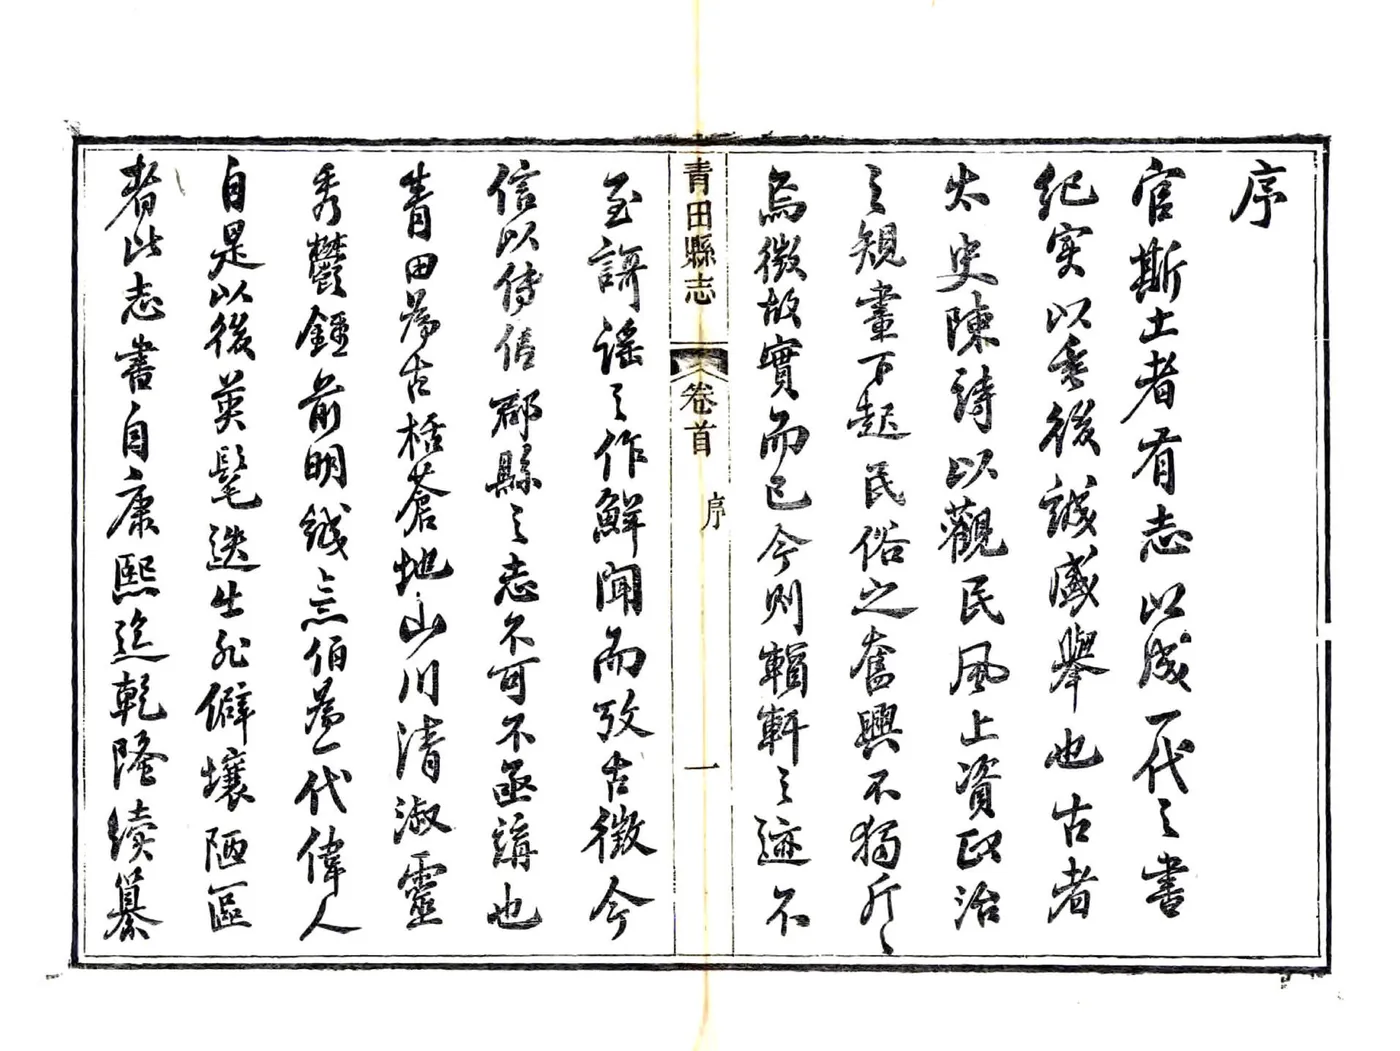 序
官斯土者有志以成一代之書
紀实以垂後誠盛舉也古者
太史陳詩以觀民風上資政治
之規畫下起民俗之奮興不獨斤〻
焉徵故實而已今则輶軒之迹不
青田縣志 卷首 序 一
至謌謡之作鮮聞而攷古徵今
信以傳信郡縣之志不可不亟講也
青田為古栝蒼地山川清淑靈
秀鬱鍾前明誠意伯為一代偉人
自是以後英髦迭生非僻壤陋區
者比志書自康熙迄乾隆续纂